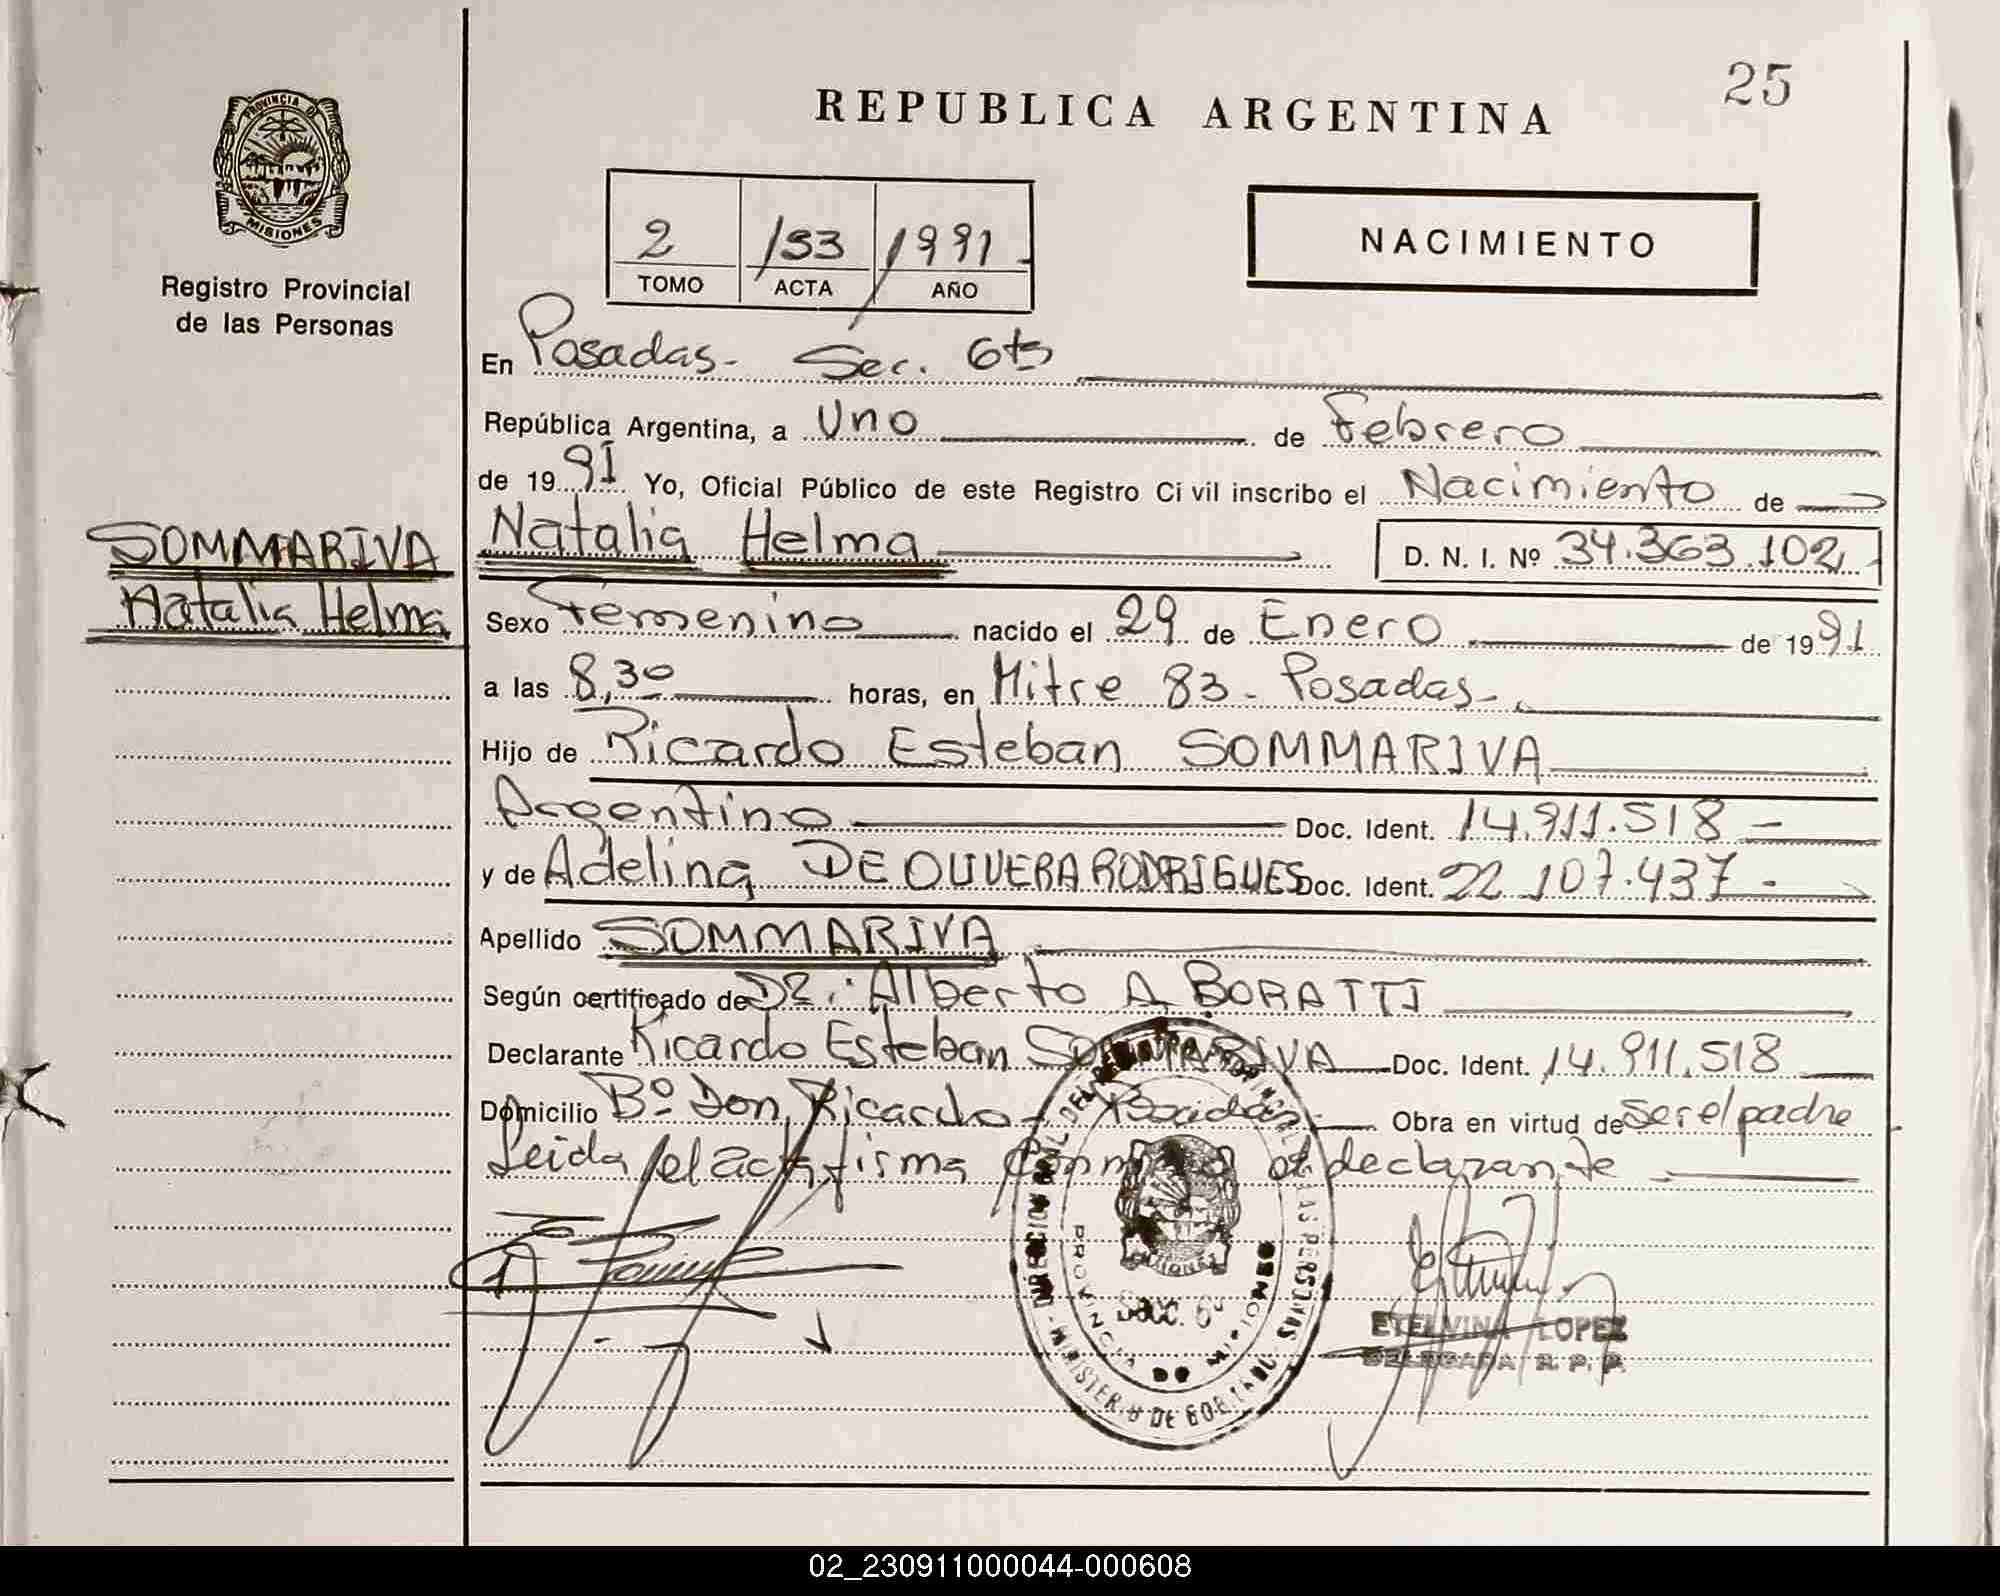 25
REPUBLICA ARGENTINA
PROVINCIA DE
MISIONES
Registro Provincial
de las Personas
2 153 1991
TOMO ACTA AÑO
NACIMIENTO
En Posadas - Sec. 6ta
República Argentina, a Uno de Febrero
de 1991 Yo, Oficial Público de este Registro Ci vil inscribo el Nacimiento de
SOMMARIVA
Natalia Helma
Natalia Helma D. N. I. Nº 34.363.102
Sexo Femenino nacido el 29 de Enero de 1991
a las 8,30 horas, en Mitre 83 - Posadas -
Hijo de Ricardo Esteban SOMMARIVA
Argentino Doc. Ident. 14.911.518 -
y de Adelina DE OLIVERA RODRIGUES Doc. Ident. 22.107.437 -
Apellido SOMMARIVA
Según certificado de Dr. Alberto A BORATTI
Declarante Ricardo Esteban SOMMARIVA Doc. Ident. 14.911.518
Domicilio Bº Don Ricardo - Posadas - Obra en virtud de ser el padre
Leida el acta firma conmigo el declarante
Secc. 6ª
PROVINCIA DE MISIONES
ETELVINA LOPEZ
DELEGADA R. P. P.
02_230911000044-000608